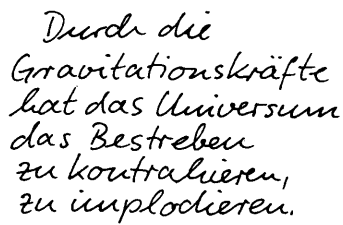 Durch die
Gravitationskräfte
hat das Universum
das Bestreben
zu kontrahieren,
zu implodieren.